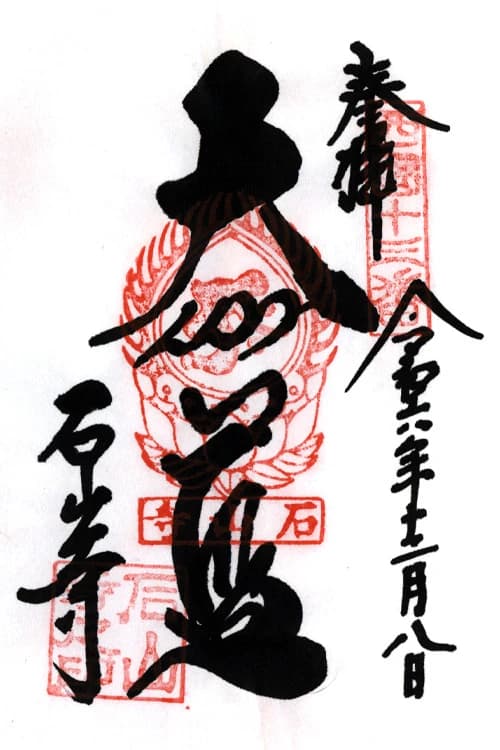 奉拝
西国十三番
令和六年十二月八日
大伽藍
石山寺
石山寺
石山寺印